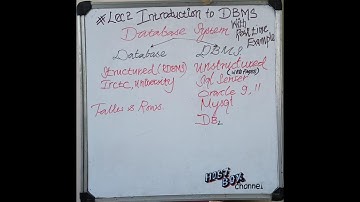 *Lec2 Introduction to DBMS
With Real time Example
Database System
Database & DBMS
Structured (RDBMS) Unstructured
(web Pages)
Irctc, University Sql Server
Oracle 9, 11
Tables & Rows. Mysql
DB2
HOEZ BOX
channel